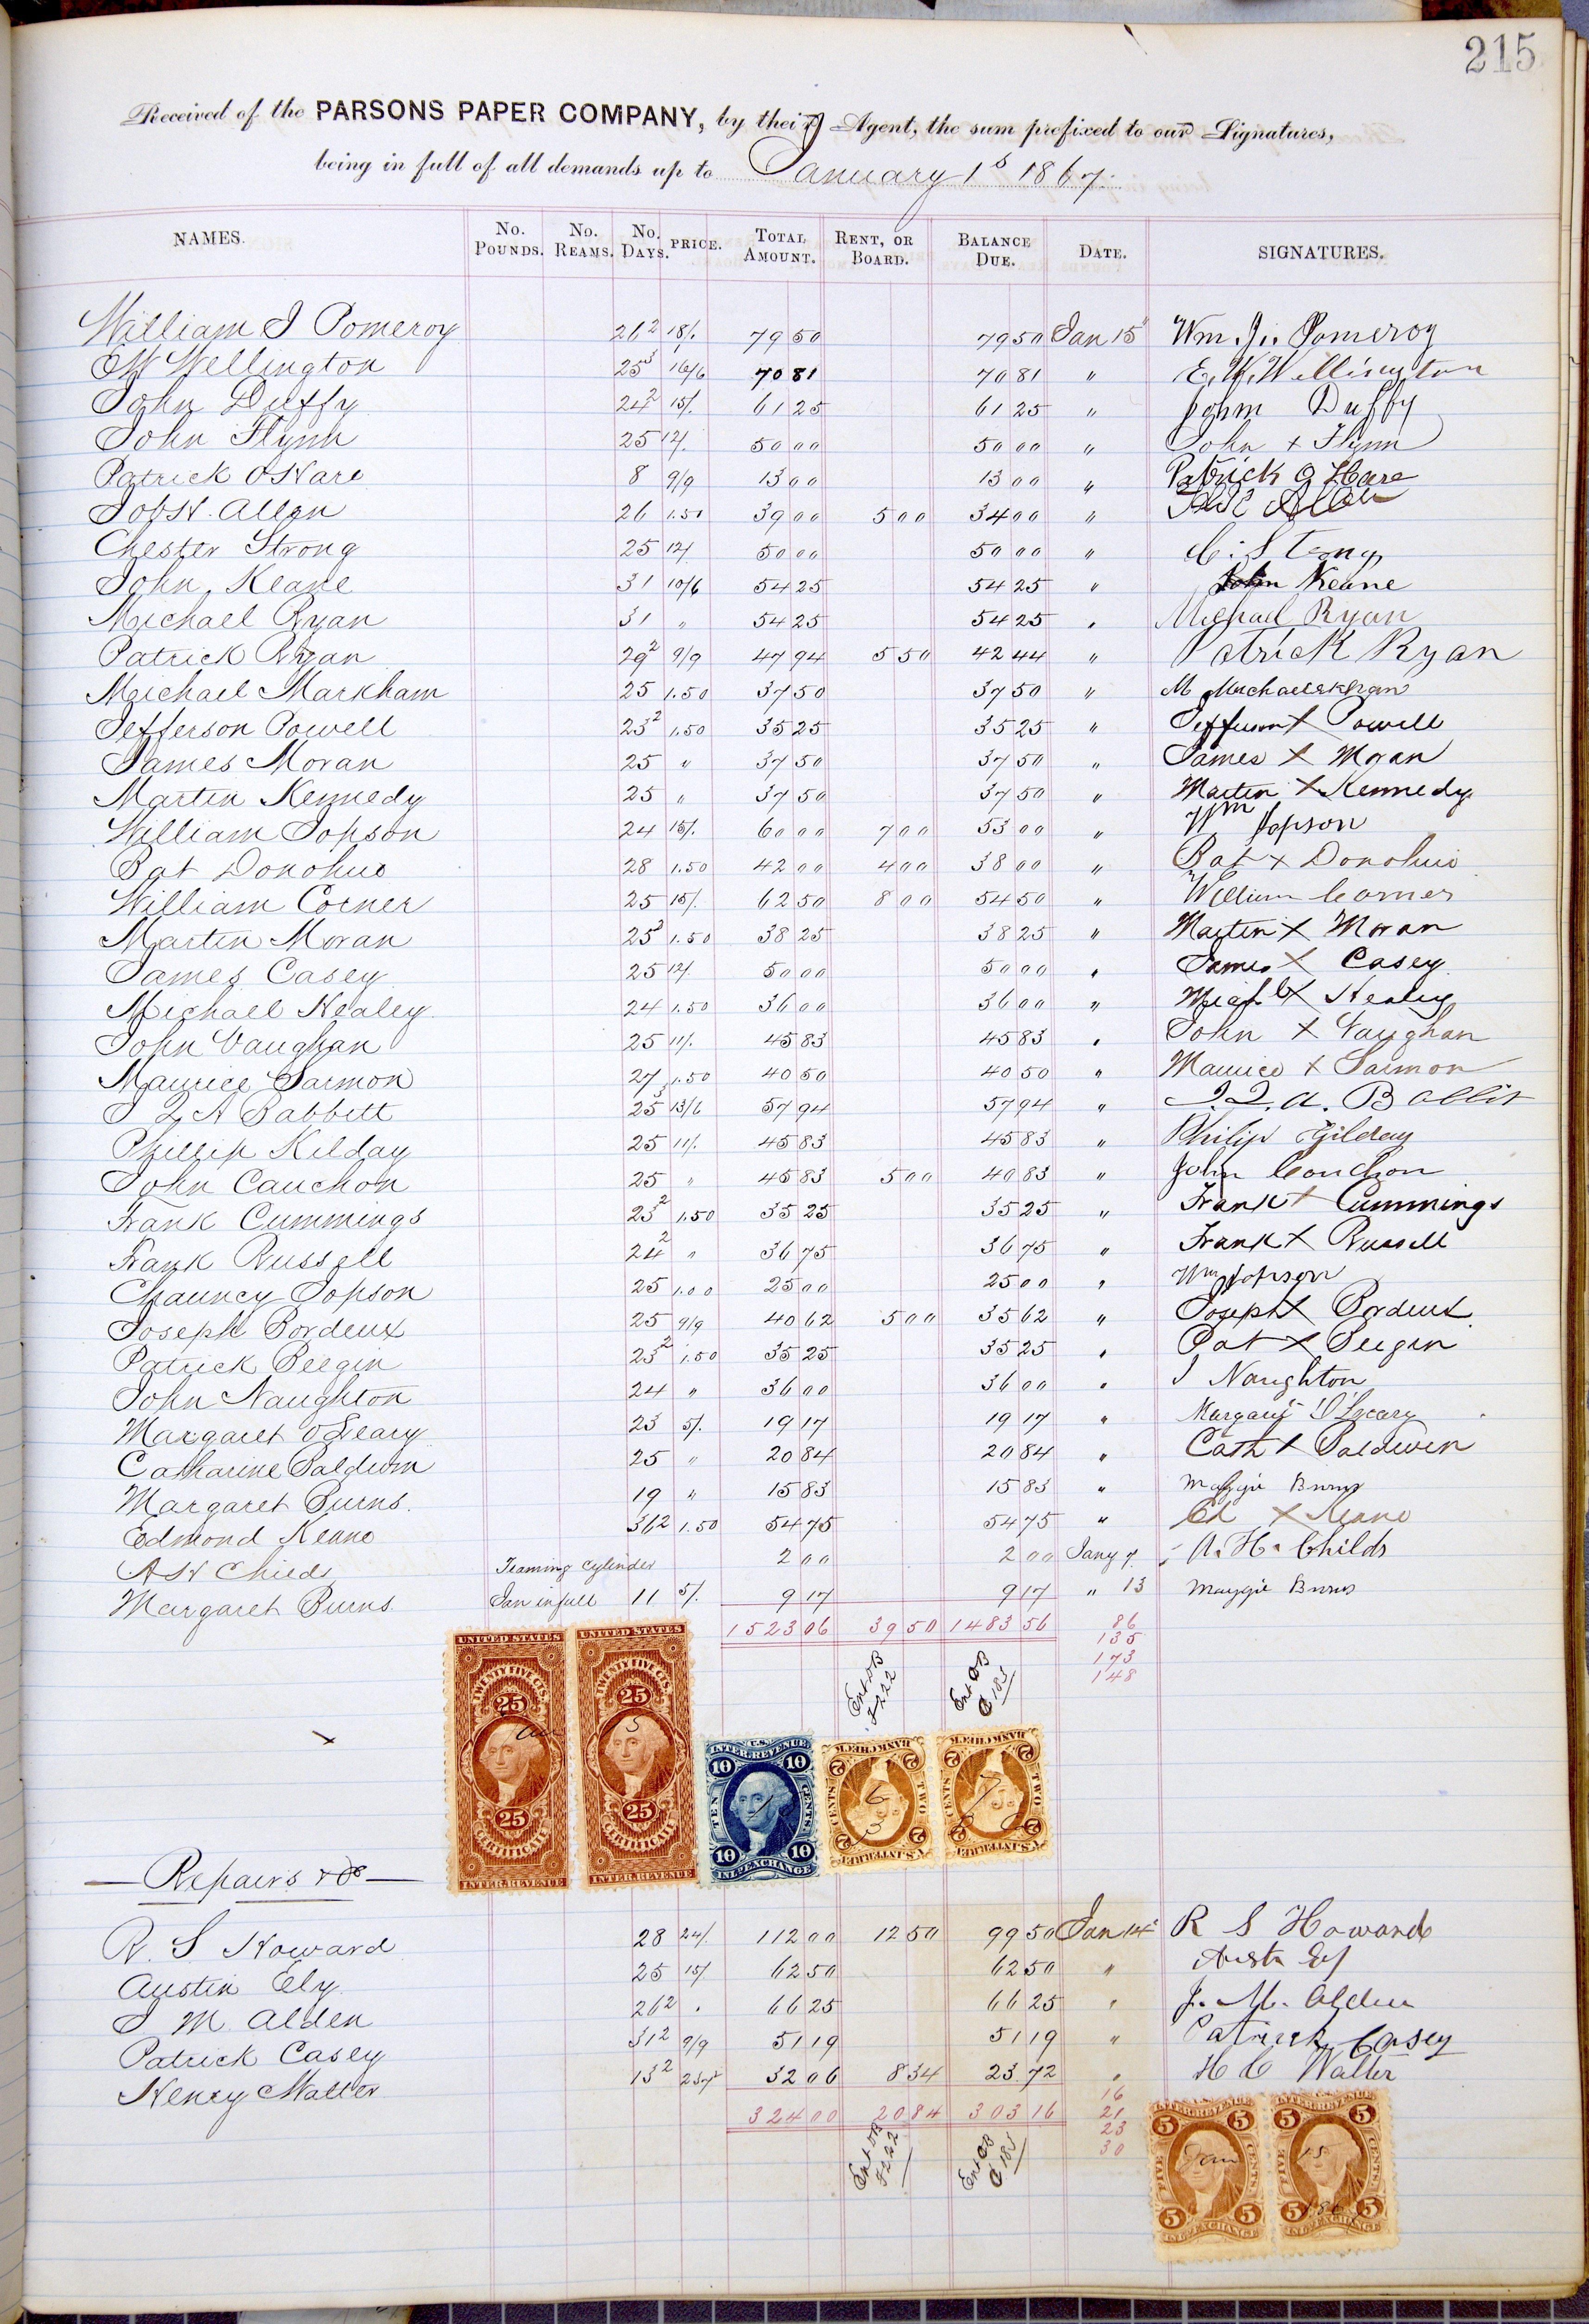 215
Received of the PARSONS PAPER COMPANY, by their Agent, the sum prefixed to our Signatures,
being in full of all demands up to January 1s 1867.
NAMES. No. Pounds. No. Reams. No. Days. PRICE. Total Amount. Rent, or Board. Balance Due. Date. SIGNATURES.
William J Pomeroy 26 2 18/. 79 50 79 50 Jan 15" Wm. J. Pomeroy
EW Wellington 25 3 16/6 70 81 70 81 " E. W. Wellington
John Duffy 24 2 15/. 61 25 61 25 " John Duffy
John Flynn 25 12/. 50 00 50 00 " John + Flynn
Patrick OHare 8 9/9 13 00 13 00 " Patrick O Hare
Job H. Allen 26 1.50 39 00 5 00 34 00 " Allen
Chester Strong 25 12/ 50 00 50 00 " C. Strong
John Keane 31 10/6 54 25 54 25 " John Keane
Michael Ryan 31 " 54 25 54 25 " Michael Ryan
Patrick Ryan 29 2 9/9 47 94 5 50 42 44 " Patrick Ryan
Michael Markham 25 1.50 37 50 37 50 " M
Jefferson Powell 23 2 1.50 35 25 35 25 " Jefferson X Powell
James Moran 25 " 37 50 37 50 " James X Moran
Martin Kennedy 25 " 37 50 37 50 " Martin X Kennedy
William Jopson 24 15/. 60 00 7 00 53 00 " Wm Jopson
Pat Donohue 28 1.50 42 00 4 00 38 00 " Pat X Donohue
William Corner 25 15/. 62 50 8 00 54 50 " William Corner
Martin Moran 25 2 1.50 38 25 38 25 " Martin X Moran
James Casey 25 12/. 50 00 50 00 " James X Casey
Michael Healey 24 1.50 36 00 36 00 " Mich l X Healey
John Vaughan 25 11/. 45 83 45 83 " John X Vaughan
Maurice Sarmon 27 1.50 40 50 40 50 " Maurice X Sarmon
J Q A Babbett 25 3 13/6 57 94 57 94 " J. Q. A. Babbit
Phillip Kilday 25 11/. 45 83 45 83 " Philip Gilday
John Cauchon 25 " 45 83 5 00 40 83 " John Couchon
Frank Cummings 23 2 1.50 35 25 35 25 " Frank X Cummings
Frank Russell 24 2 " 36 75 36 75 " Frank X Russell
Chauncy Jopson 25 1.00 25 00 25 00 " Wm Jopson
Joseph Bordeux 25 9/9 40 62 5 00 35 62 " Joseph X Bordeux
Patrick Beegin 23 2 1.50 35 25 35 25 " Pat X Beegin
John Naughton 24 " 36 00 36 00 " J Naughton
Margaret OLeary 23 5/. 19 17 19 17 " Margaret O'Leary
Catharine Baldwin 25 " 20 84 20 84 " Cath X Baldwin
Margaret Burns. 19 " 15 83 15 83 " Maggie Burns
Edmond Keane 36 2 1.50 54 75 54 75 " Ed X Keane
A H Childs Teaming Cylinder 2 00 2 00 Jany 7. A. H. Childs
Margaret Burns Jan in full 11 5/. 9 17 9 17 " 13 Maggie Burns
1523 06 39 50 1483 56 86
135
173
148
Ent DB
F 222
Ent CB
C 185
UNITED STATES TWENTY FIVE CTS. 25 25 CERTIFICATE INTER. REVENUE
UNITED STATES TWENTY FIVE CTS. 25 25 CERTIFICATE INTER. REVENUE
Jan 15
U.S. INTER. REVENUE 10 10 TEN CENTS 10 10 INL. EXCHANGE
BANK CHECK 2 2 TWO CENTS 2 2 U.S. INTER. REV.
BANK CHECK 2 2 TWO CENTS 2 2 U.S. INTER. REV.
Repairs &c
R. S. Howard 28 24/. 112 00 12 50 99 50 Jan 14" R S Howard
Austin Ely 25 15/ 62 50 62 50 " Austn Ely
J M Alden 26 2 " 66 25 66 25 " J. M. Alden
Patrick Casey 31 2 9/9 51 19 51 19 " Patrick Casey
Henry Walter 13 2 2 37½ 32 06 8 34 23 72 " H C Walter
324 00 20 84 303 16 16
21
23
30
Ent DB
F 222
Ent CB
C 185
INTER. REVENUE 5 5 FIVE CENTS. 5 5 INL. EXCHANGE
INTER. REVENUE 5 5 FIVE CENTS. 5 5 INL. EXCHANGE
Jan 15